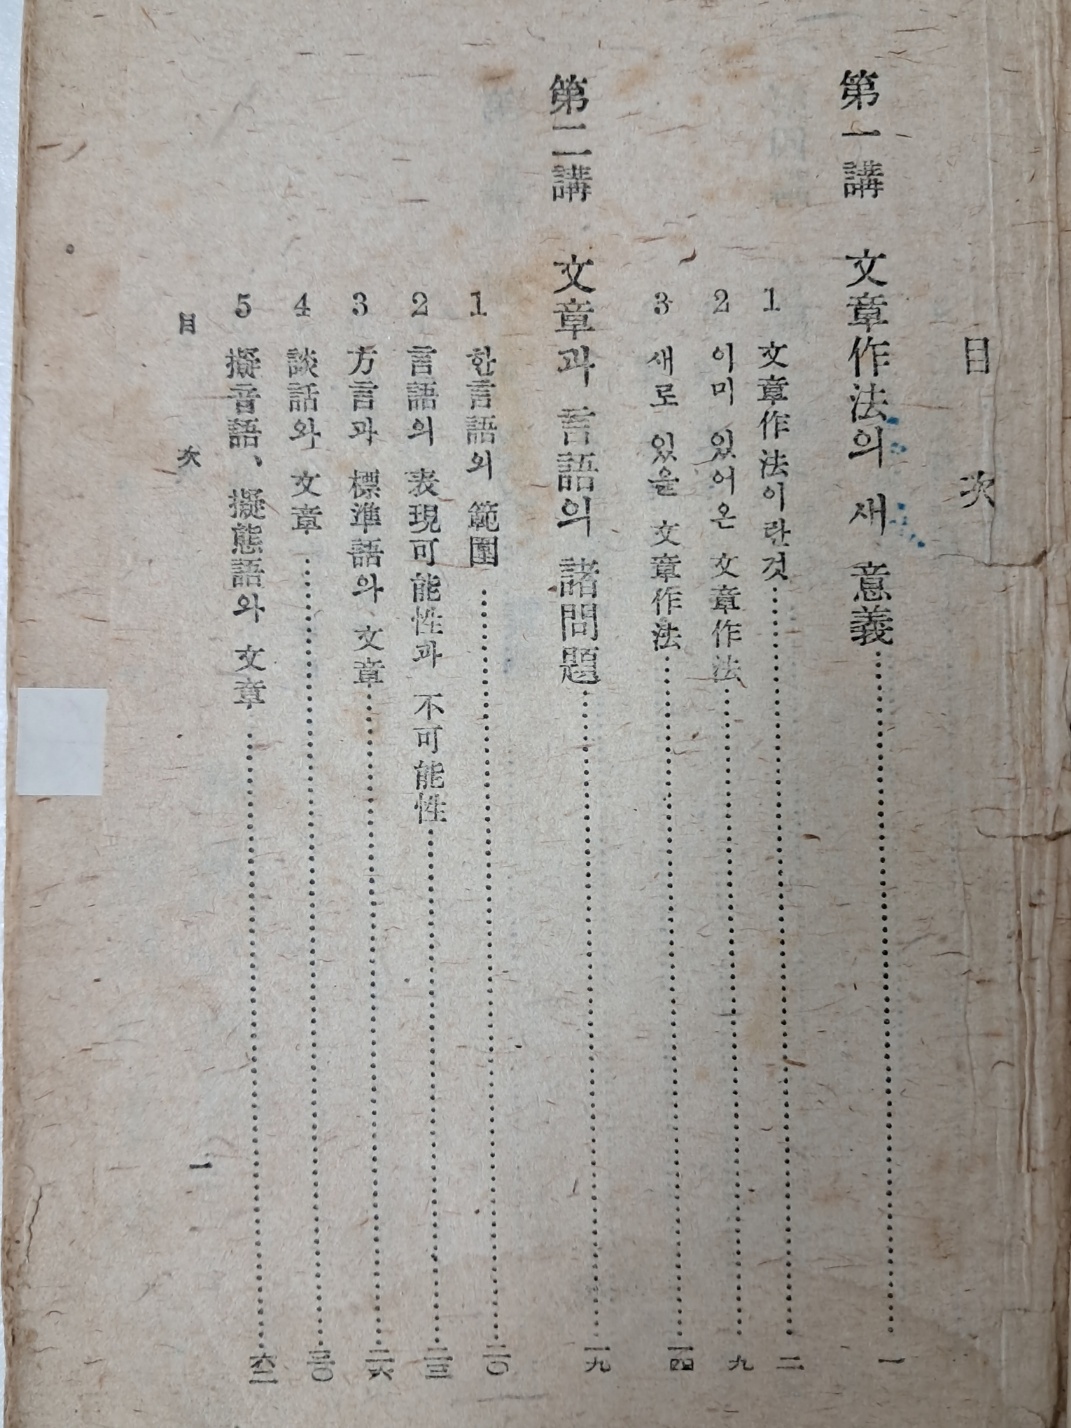 目次
第一講 文章作法의 새 意義……一
1 文章作法이란것……二
2 이미 있어온 文章作法……九
3 새로 있을 文章作法……一四
第二講 文章과 言語의 諸問題……一九
1 한言語의 範圍……二〇
2 言語의 表現可能性과 不可能性……二三
3 方言과 標準語와 文章……二六
4 談話와 文章……三〇
5 擬音語、擬態語와 文章
目次 一